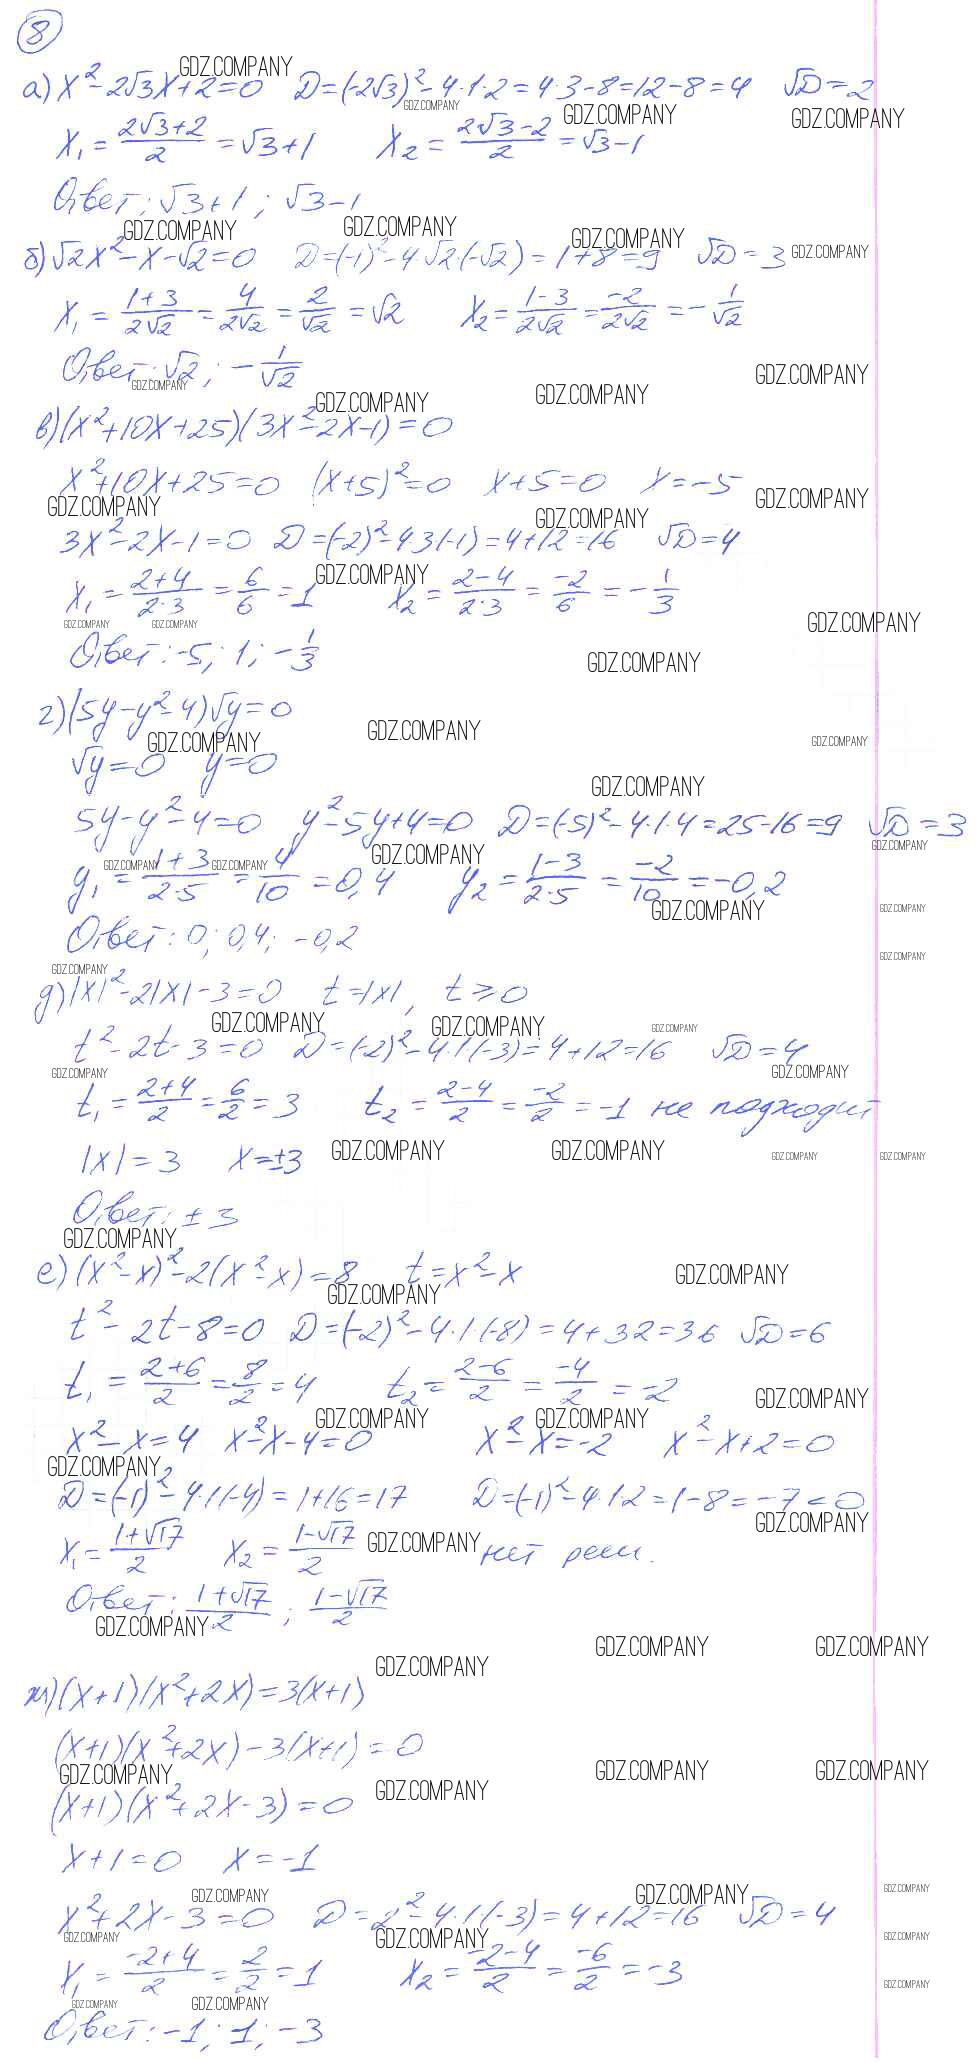 8
а) x² - 2√3x + 2 = 0   D = (-2√3)² - 4·1·2 = 4·3 - 8 = 12 - 8 = 4   √D = 2
x₁ = (2√3+2)/2 = √3+1   x₂ = (2√3-2)/2 = √3-1
Ответ: √3+1 ; √3-1
б) √2x² - x - √2 = 0   D = (-1)² - 4√2·(-√2) = 1+8 = 9   √D = 3
x₁ = (1+3)/(2√2) = 4/(2√2) = 2/√2 = √2   x₂ = (1-3)/(2√2) = -2/(2√2) = -1/√2
Ответ: √2 ; -1/√2
в) (x²+10x+25)(3x²-2x-1) = 0
x²+10x+25=0   (x+5)²=0   x+5=0   x=-5
3x²-2x-1=0   D=(-2)²-4·3(-1)=4+12=16   √D=4
x₁ = (2+4)/(2·3) = 6/6 = 1   x₂ = (2-4)/(2·3) = -2/6 = -1/3
Ответ: -5; 1; -1/3
г) (5y-y²-4)√y=0
√y=0   y=0
5y-y²-4=0   y²-5y+4=0   D=(-5)²-4·1·4=25-16=9   √D=3
y₁ = (1+3)/(2·5) = 4/10 = 0,4   y₂ = (1-3)/(2·5) = -2/10 = -0,2
Ответ: 0; 0,4; -0,2
д) |x|²-2|x|-3=0   t=|x|, t⩾0
t²-2t-3=0   D=(-2)²-4·1(-3)=4+12=16   √D=4
t₁ = (2+4)/2 = 6/2 = 3   t₂ = (2-4)/2 = -2/2 = -1 не подходит
|x|=3   x=±3
Ответ: ±3
е) (x²-x)²-2(x²-x)=8   t=x²-x
t²-2t-8=0   D=(-2)²-4·1(-8)=4+32=36   √D=6
t₁ = (2+6)/2 = 8/2 = 4   t₂ = (2-6)/2 = -4/2 = -2
x²-x=4   x²-x-4=0   x²-x=-2   x²-x+2=0
D=(-1)²-4·1(-4)=1+16=17   D=(-1)²-4·1·2=1-8=-7<0
x₁ = (1+√17)/2   x₂ = (1-√17)/2   нет реш.
Ответ: (1+√17)/2 ; (1-√17)/2
ж) (x+1)(x²+2x)=3(x+1)
(x+1)(x²+2x)-3(x+1)=0
(x+1)(x²+2x-3)=0
x+1=0   x=-1
x²+2x-3=0   D=2²-4·1(-3)=4+12=16   √D=4
x₁ = (-2+4)/2 = 2/2 = 1   x₂ = (-2-4)/2 = -6/2 = -3
Ответ: -1; 1; -3
GDZ.COMPANY